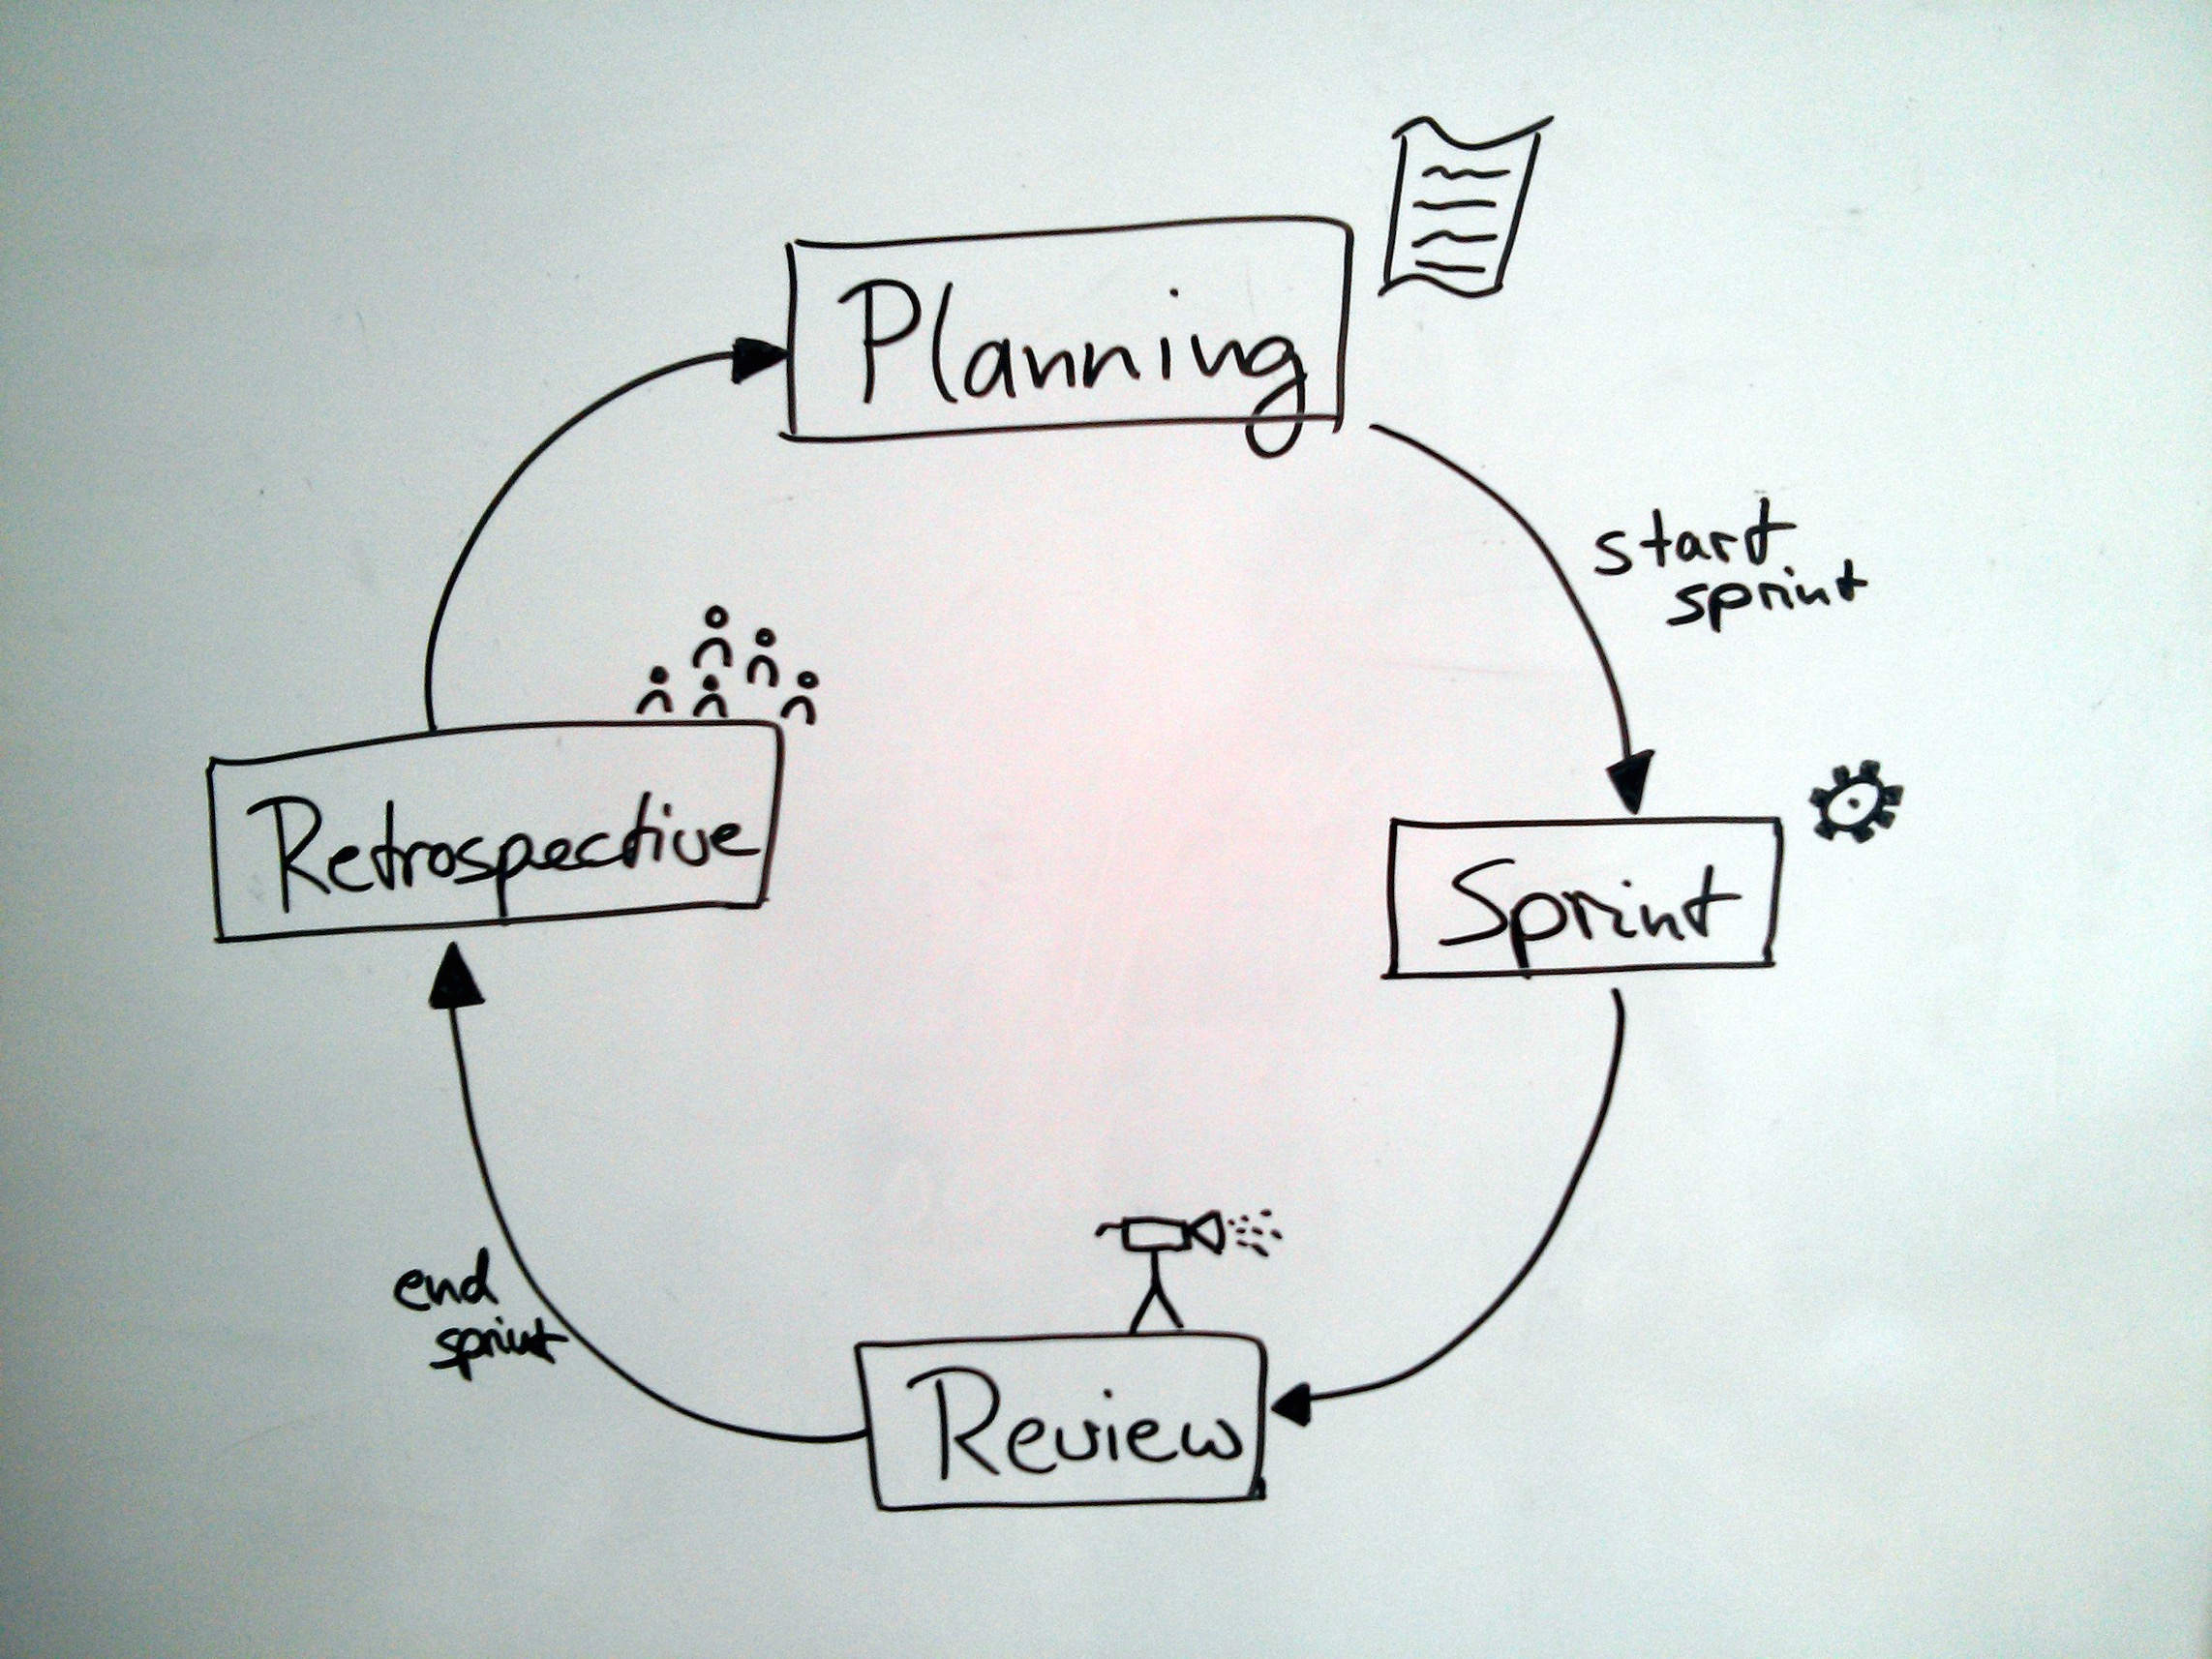 Planning
start
sprint
Sprint
Review
end
sprint
Retrospective